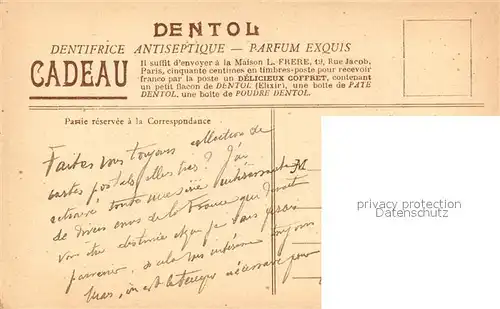 DENTOL
DENTIFRICE ANTISEPTIQUE — PARFUM EXQUIS
CADEAU
Il suffit d'envoyer à la Maison L. FRERE, 19, Rue Jacob,
Paris, cinquante centimes en timbres-poste pour recevoir
franco par la poste un DÉLICIEUX COFFRET, contenant
un petit flacon de DENTOL (Elixir), une boîte de PATE
DENTOL, une boîte de POUDRE DENTOL.
Partie réservée à la Correspondance
Faites vous toujours collection de
cartes postales illustrées? J'ai
retrouvé toute une série
de divers envois de la France qui
vous être destinée et que je vais
parvenir, si cela vous intéresse toujours
mais, en est-le temps nécessaire pour
M
privacy protection
Datenschutz